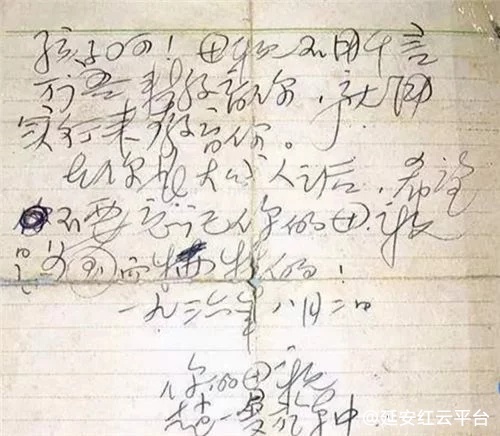 孩子呵！母親不用千言
万语来教育你，就用
实行来教育你。
在你长大成人之后，希望
不要忘记你的母親
是为国而牺牲的！
一九三六年八月二日
你的母親
赵一曼于车中
@延安红云平台